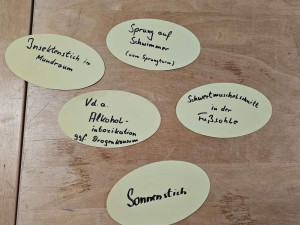 Insektenstich im
Mundraum
Sprung auf
Schwimmer
(vom Sprungturm)
V.d.a.
Alkohol-
intoxikation
ggf. Drogenkonsum
Schwertmuschelschnitt
in der
Fußsohle
Sonnenstich